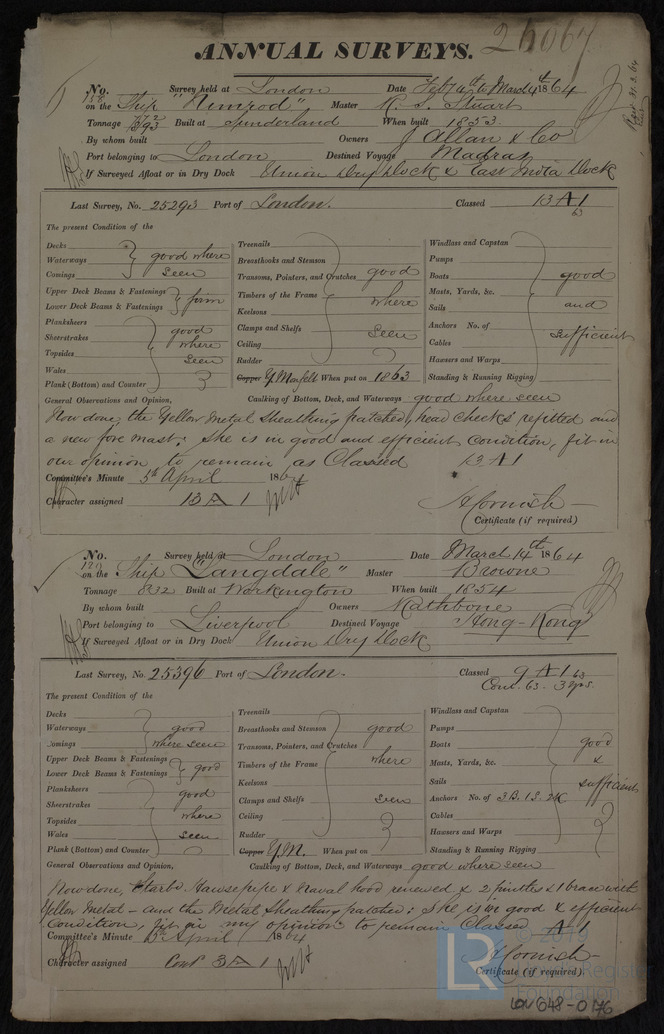 ANNUAL SURVEYS. 25067
No. 138 Survey held at London Date Feby 4th to March 4th 1864
on the Ship "Nimrod" Master R. S. Stuart
Tonnage Built at Sunderland When built 1853
By whom built Owners J Allan & Co
Port belonging to London Destined Voyage Madras
If Surveyed Afloat or in Dry Dock Union Dry Dock & East India Dock
Last Survey, No. 25293 Port of London. Classed 13 A 1 63
The present Condition of the
Decks
Waterways good where
Comings seen
Upper Deck Beams & Fastenings
Lower Deck Beams & Fastenings firm
Planksheers
Sheerstrakes good
Topsides where
Wales seen
Plank (Bottom) and Counter
Treenails
Breasthooks and Stemson
Transoms, Pointers, and Crutches good
Timbers of the Frame where
Keelsons
Clamps and Shelfs seen
Ceiling
Rudder
Copper Y. M on felt When put on 1863
Windlass and Capstan
Pumps
Boats good
Masts, Yards, &c.
Sails and
Anchors No. of
Cables sufficient
Hawsers and Warps
Standing & Running Rigging
General Observations and Opinion, Caulking of Bottom, Deck, and Waterways good where seen
Now done, the Yellow Metal Sheathing patched, head checks refitted and
a new fore mast; she is in good and efficient condition, fit in
our opinion to remain as Classed 13 A 1
Committee's Minute 5th April 1864
Character assigned 13 A 1
A Cornish
Certificate (if required)
No. Survey held at London Date March 14th 1864
on the Ship "Langdale" Master Browne
Tonnage 832 Built at Workington When built 1854
By whom built Owners Rathbone
Port belonging to Liverpool Destined Voyage Hong-Kong
If Surveyed Afloat or in Dry Dock Union Dry Dock
Last Survey, No. 25396 Port of London. Classed 9 A 1 63
Cont. 63 - 3 yrs.
The present Condition of the
Decks
Waterways good
Comings where seen
Upper Deck Beams & Fastenings
Lower Deck Beams & Fastenings good
Planksheers good
Sheerstrakes
Topsides where
Wales seen
Plank (Bottom) and Counter
Treenails
Breasthooks and Stemson good
Transoms, Pointers, and Crutches
Timbers of the Frame where
Keelsons
Clamps and Shelfs seen
Ceiling
Rudder
Copper Y.M. When put on
Windlass and Capstan
Pumps
Boats good
Masts, Yards, &c. &
Sails sufficient
Anchors No. of 3 B. 1 S. 2 K
Cables
Hawsers and Warps
Standing & Running Rigging
General Observations and Opinion, Caulking of Bottom, Deck, and Waterways good where seen
Now done, Starbd. Hawsepipe & Naval hood renewed & 2 pintles & 1 brace with
Yellow Metal - and the Metal Sheathing patched; she is in good & efficient
Condition, fit in my opinion to remain Classed A 1
Committee's Minute April 1864
Character assigned Cont 3 A 1
A Cornish
Certificate (if required)
LR
© 2019
Lloyd's Register
Foundation
LON 648-0176